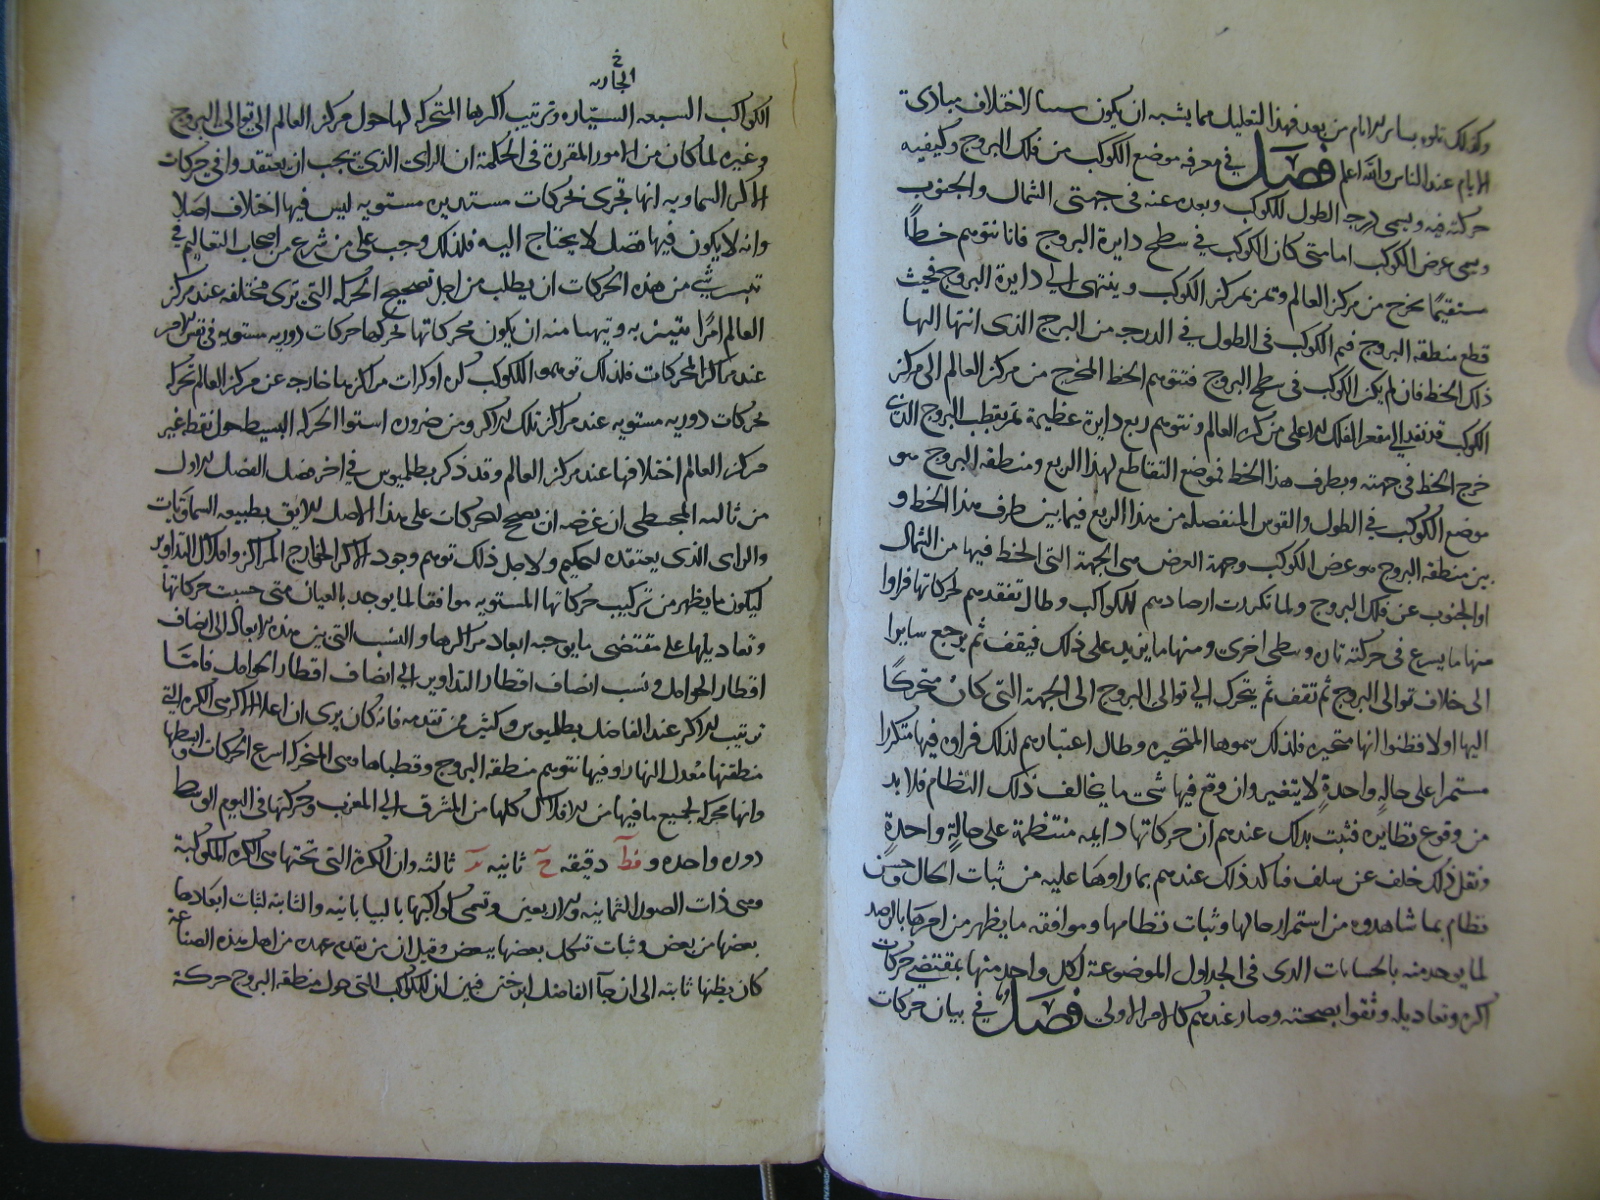 وكذلك تلوه بساير الايام من بعد فهذا التعليل مما يشبه ان يكون سببا لاختلاف مبادى
الايام عند الناس والله اعلم فصل في معرفه موضع الكوكب من فلك البروج وكيفيه
حركته فيه ويسمى درجه الطول للكوكب وبعده عنه في جهتى الشمال والجنوب
ويسمى عرض الكوكب اما متى كان الكوكب في سطح دايرة البروج فانا نتوهم خطا
مستقيما يخرج من مركز العالم ويمر بمركز الكوكب وينتهى الي دايرة البروج فحيث
قطع منطقه البروج فهم الكوكب في الطول في الدرجه من البرج الذى انتها اليها
ذلك الخط فان لم يكن الكوكب في سطح البروج فنتوهم الخط المخرج من مركز العالم الى مركز
الكوكب قد نفد الي مقعر الفلك الاعلى من كره العالم ونتوهم ربع دايرة عظيمة تمر بقطب البروج الذى
خرج الخط في جهته وبطرف هذا الخط فموضع التقاطع لهذا الربع ومنطقه البروج هو
موضع الكوكب في الطول والقوس المنفصله من هذا الربع فيما بين طرف هذا الخط و
بين منطقه البروج هو عرض الكوكب وجهة العرض هى الجهة التى الخط فيها من الشمال
او الجنوب عن فلك البروج ولما تكررت ارصادهم للكواكب وطال تفقدهم لحركاتها فراوا
منها ما يسرع في حركته تاره وسطى اخرى ومنها ما يزيد على ذلك فيقف ثم يرجع سايرا
الى خلاف توالى البروج ثم تقف ثم يتحرك الي توالى البروج الى الجهة التى كان متحركا
اليها اولا فظنوا انها متحيره فلذلك سموها المتحيره وطال اعتبارهم لذلك فراوه فيها متكررا
مستمرا على حالة واحدة لا يتغير وان وقع فيها شى ما يخالف ذلك النظام فلا بد
من وقوع نظايره فثبت بذلك عندهم ان حركاتها دايمه منتظمة على حالة واحدة
ونقل ذلك خلف عن سلف فتاكد ذلك عندهم بما راوها عليه من ثبات الحال وحسن
نظام بما شاهدوه من استمرار حالها وثبات نظامها وموافقه ما يظهر من امرها بالرصد
لما يوجد منه بالحسابات الذى في الجداول الموضوعة لكل واحد منها بمقتضى حركات
اكره وتعاديله وثقوا بصحته وصار عندهم كالامر الاولى فصل في بيان حركات
الجاريه خ
الكواكب السبعه السياره وترتيب اكرها المتحركه لها حول مركز العالم الى توالى البروج
وغيره لما كان من الامور المقررة في الحكمة ان الراى الذى يجب ان يعتقد وا في حركات
الاكر السماويه انها تجرى بحركات مستديره مستويه ليس فيها اختلاف اصلا
وانه لا يكون فيها فضل لا يحتاج اليه فلذلك وجب على من شرع من اصحاب التعاليم في
شي من هذه الحركات ان يطلب من اجل تصحيح الحركه التى ترى مختلفه عند مركز
العالم امرا به ويتهيا منه ان يكون محركاتها تحركها حركات دوريه مستويه في نفس الامر
عند مراكز المحركات فلذلك توهموا للكوكب كره او كرات مراكزها خارجه عن مركز العالم تحركه
بحركات دوريه مستويه عند مراكز تلك الاكر ومن ضروره استوا الحركه البسيطه حول نقط غير
مركز العالم اختلافها عند مركز العالم وقد ذكر بطلميوس في اخر فصل الفصل الاول
من ثالثه المجسطى ان غرضه ان يصحح الحركات على هذا الاصل اللايق بطبيعه السماويات
والراى الذى يعتقده الحكيم ولاجل ذلك توهم وجود الاكر الخارج المراكز وافلاك التداوير
ليكون ما يظهر من تركيب حركاتها المستويه موافقا لما يوجد بالعيان متى حسبت حركاتها
وتعاديلها على مقتضى ما يوجبه ابعاد مراكزها والنسب التى بين هذه الابعاد الى انصاف
اقطار الحوامل ونسب انصاف اقطار التداوير الي انصاف اقطار الحوامل فاما
ترتيب الاكر عند الفاضل بطلميوس وكثير ممن تقدمه فانه كان يرى ان اعلا الاكر هى الكره التى
منطقتها معدل النهار وفيها نتوهم منطقه البروج وقطباها وهى المتحركه اسرع الحركات وابسطها
وانها محركه لجميع ما فيها من الافلاك كلها من المشرق الي المغرب وحركتها في اليوم الوسط
دوره واحده و نط دقيقه ح ثانيه ثالثه وان الكرة التى تحتها هى الكره المكوكبة
وهى ذات الصور الثمانيه والاربعين وتسمى كواكبها بالبيابانيه والثابته لثبات ابعادها
بعضها من بعض وثبات تشكل بعضها ببعض وقيل ان من تقدم عهده من اهل هذه الصناعة
كان يظنها ثابته الى ان جا الفاضل ابرخس فبين ان للكواكب التى حول منطقه البروج حركة